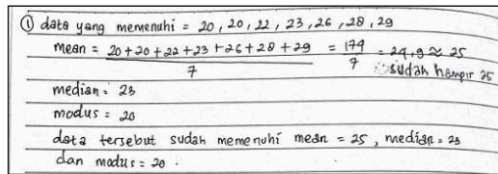 ① data yang memenuhi = 20, 20, 22, 23, 26, 28, 29
mean = 20+20+22+23+26+28+29 / 7 = 174 / 7 = 24,9 ≈ 25
∴ sudah hampir 25
median = 23
modus = 20
data tersebut sudah memenuhi mean = 25, median = 23
dan modus = 20.